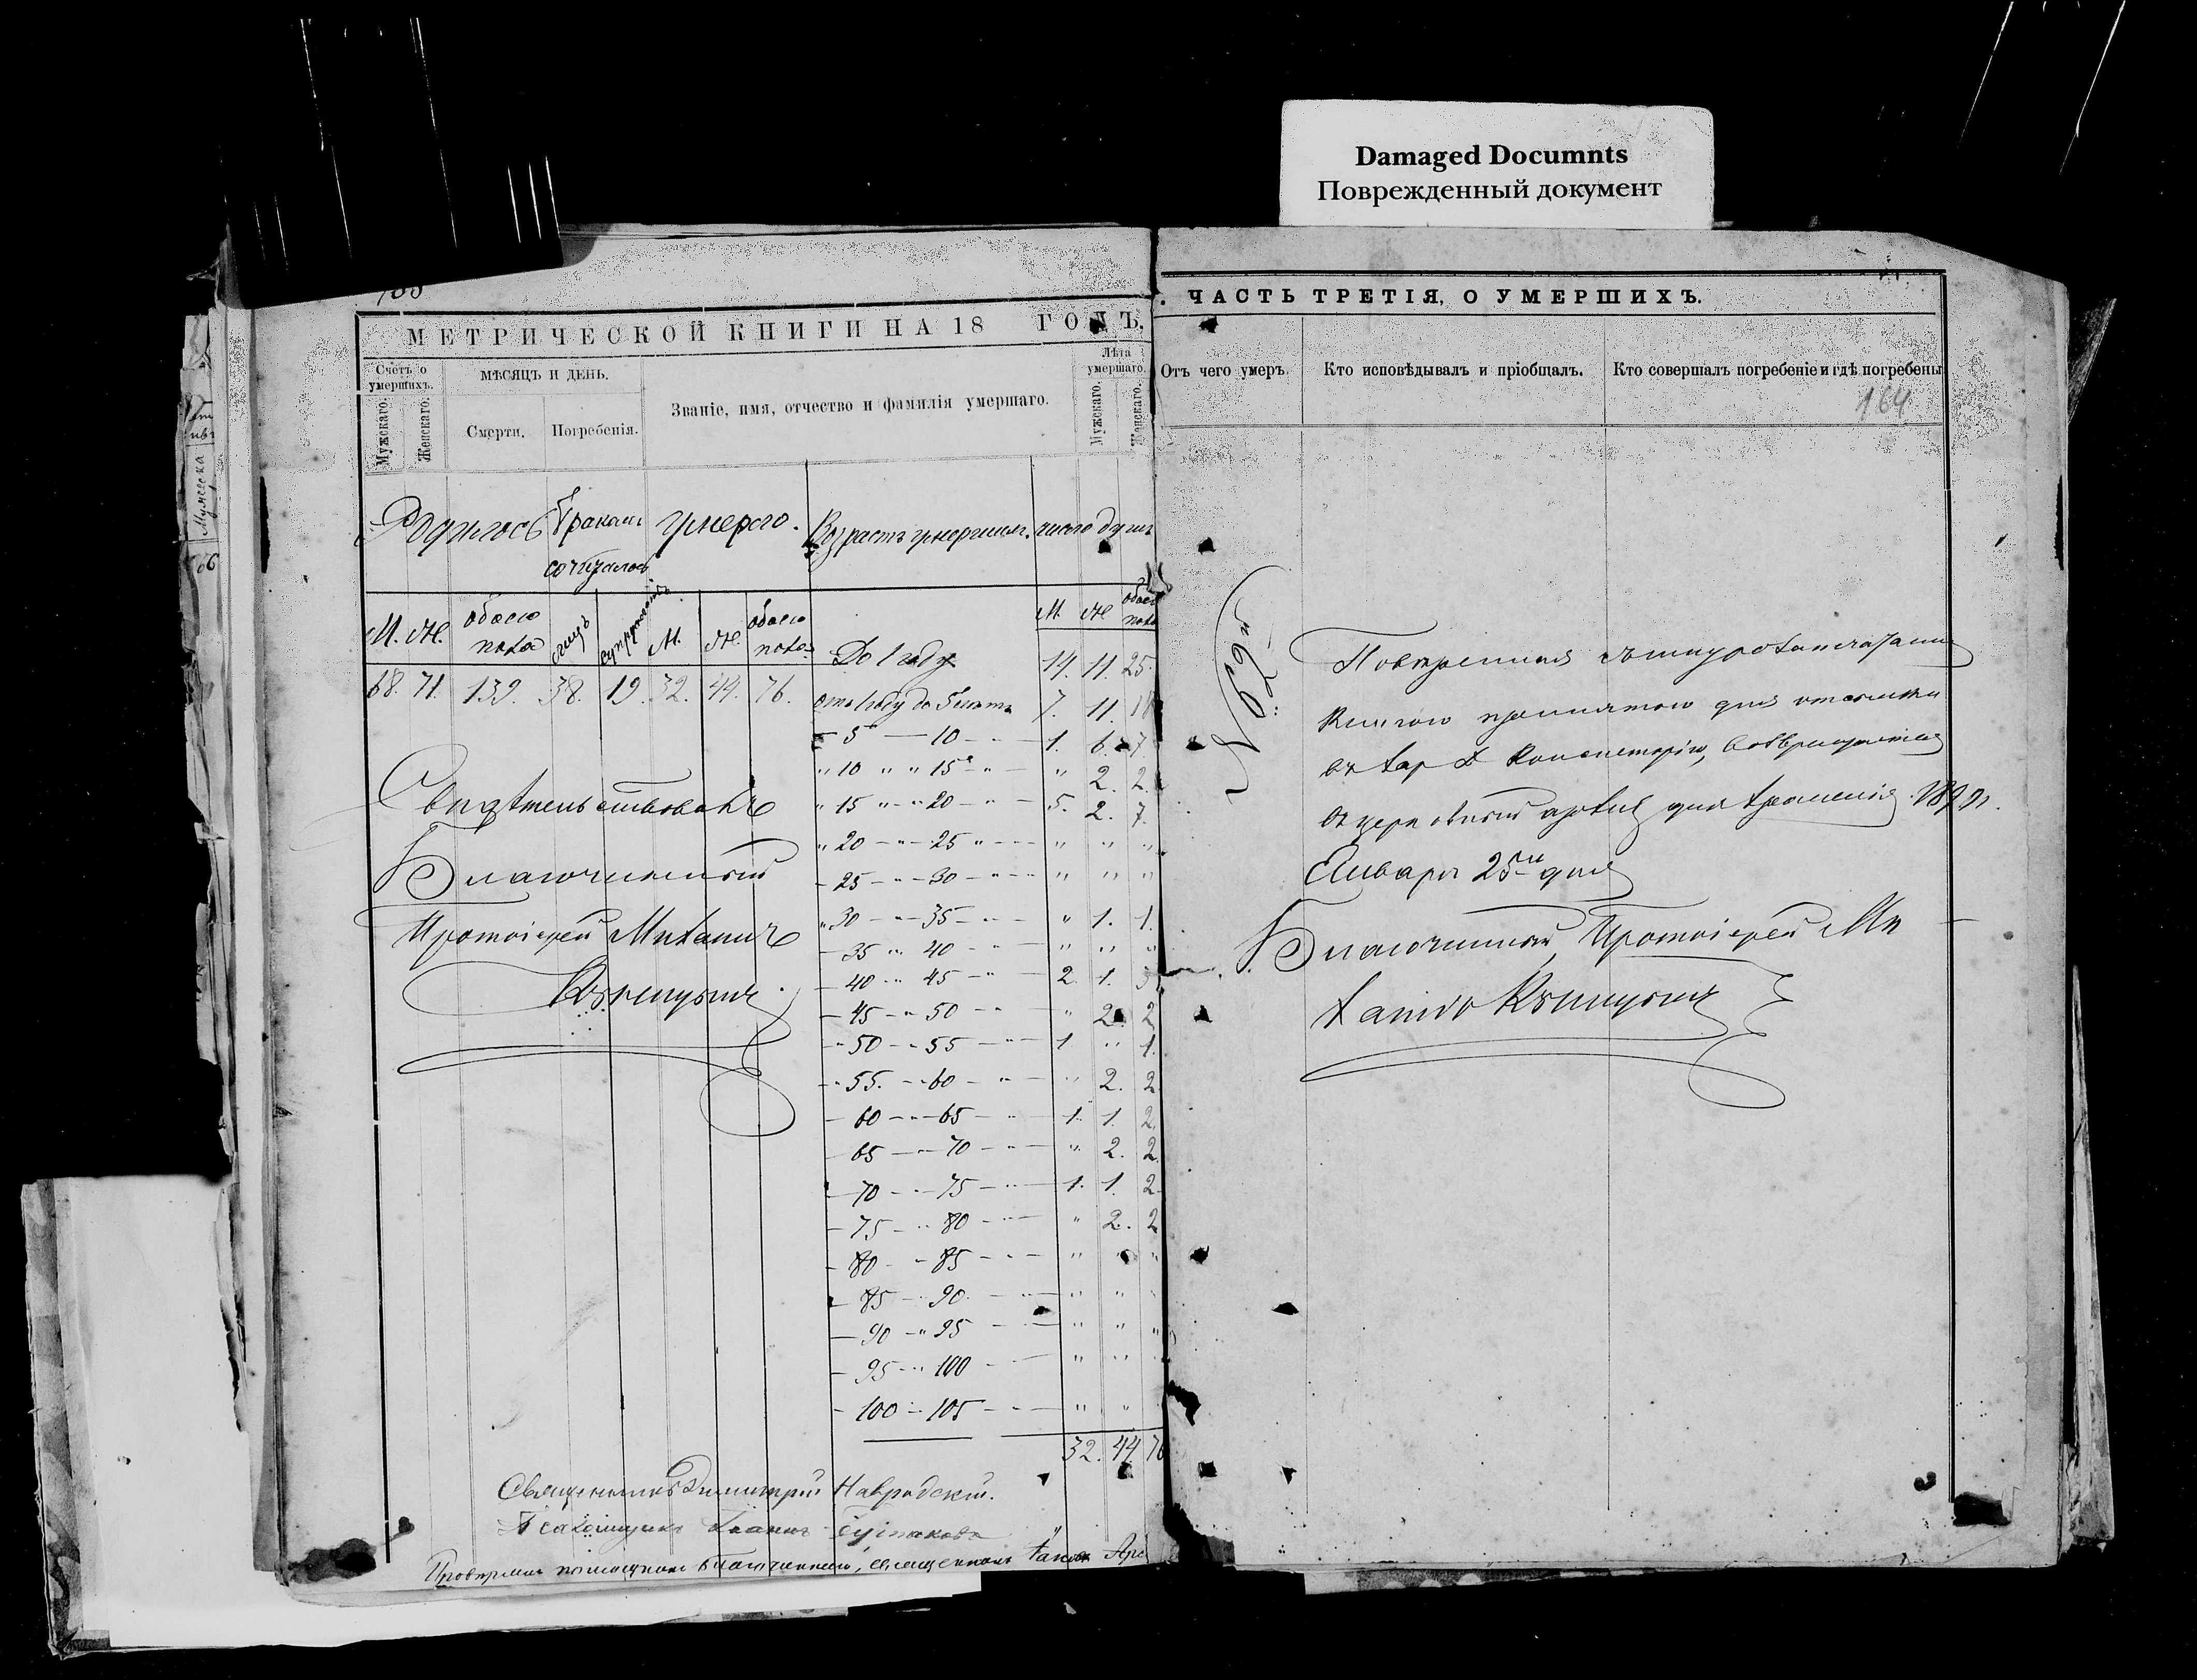 Damaged Documnts
Поврежденный документ
МЕТРИЧЕСКОЙ КНИГИ НА 18 ГОДЪ.
Счетъ о умершихъ.
Мужскаго.
Женскаго.
МѢСЯЦЪ И ДЕНЬ.
Смерти.
Погребенія.
Званіе, имя, отчество и фамилія умершаго.
Лѣта умершаго.
Мужскаго.
Женскаго.
Родилось
Бракомъ сочеталось
умерло.
Возрастъ умершихъ.
число душъ
М. Ж. обоего пола
лицъ
супружествъ
М. Ж. обоего пола
М. Ж. обоего пола
68. 71. 139. 38. 19. 32. 44. 76.
До 1 году 14. 11. 25.
отъ 1 году до 5 лѣтъ 7. 11. 18
— 5 — 10 — 1. 6. 7
" 10 " " 15 " — " 2. 2.
" 15 " — " 20 — " — 5. 2. 7.
" 20 — " — 25 " — " " "
— 25 — " — 30 — " — " " "
" 30 — " — 35 — " — " 1. 1.
— 35 " " 40 — " — " " "
— 40 — " 45 — " — 2. 1. 3
— 45 — " 50 — " — " 2 2
— " 50 — " 55 — " — 1 " 1.
— " 55. — " 60 — " — " 2. 2
— 60 — " — 65 — " — 1. 1. 2.
— 65 — " — 70 — " — " 2. 2.
— 70 — " — 75 — " — 1. 1. 2
— 75 — " 80 — " — " 2. 2
— 80 — " 85 — " — " " "
— 85 — " 90 — " — " "
— 90 — " 95 — " — " " "
— 95 — " 100 — " "
— 100 — 105 — " — " "
32. 44. 76
Свидѣтельствовалъ
Благочинный
Протоіерей Михаилъ
Кузнецовъ
Священникъ Димитрій Навродскій.
Псаломщикъ Іоаннъ
Провѣрялъ помощникъ благочиннаго, священникъ
. ЧАСТЬ ТРЕТІЯ, О УМЕРШИХЪ.
Отъ чего умеръ.
Кто исповѣдывалъ и пріобщалъ.
Кто совершалъ погребеніе и гдѣ погребены
164
Повѣренная съ шнурозапечатанною
книгою принятою для отсылки
въ Хар Д Консисторію, возвращается
въ церковный архивъ для храненія.
Января 25го дня
Благочинный, Протоіерей Ми
хаилъ Кузнецовъ